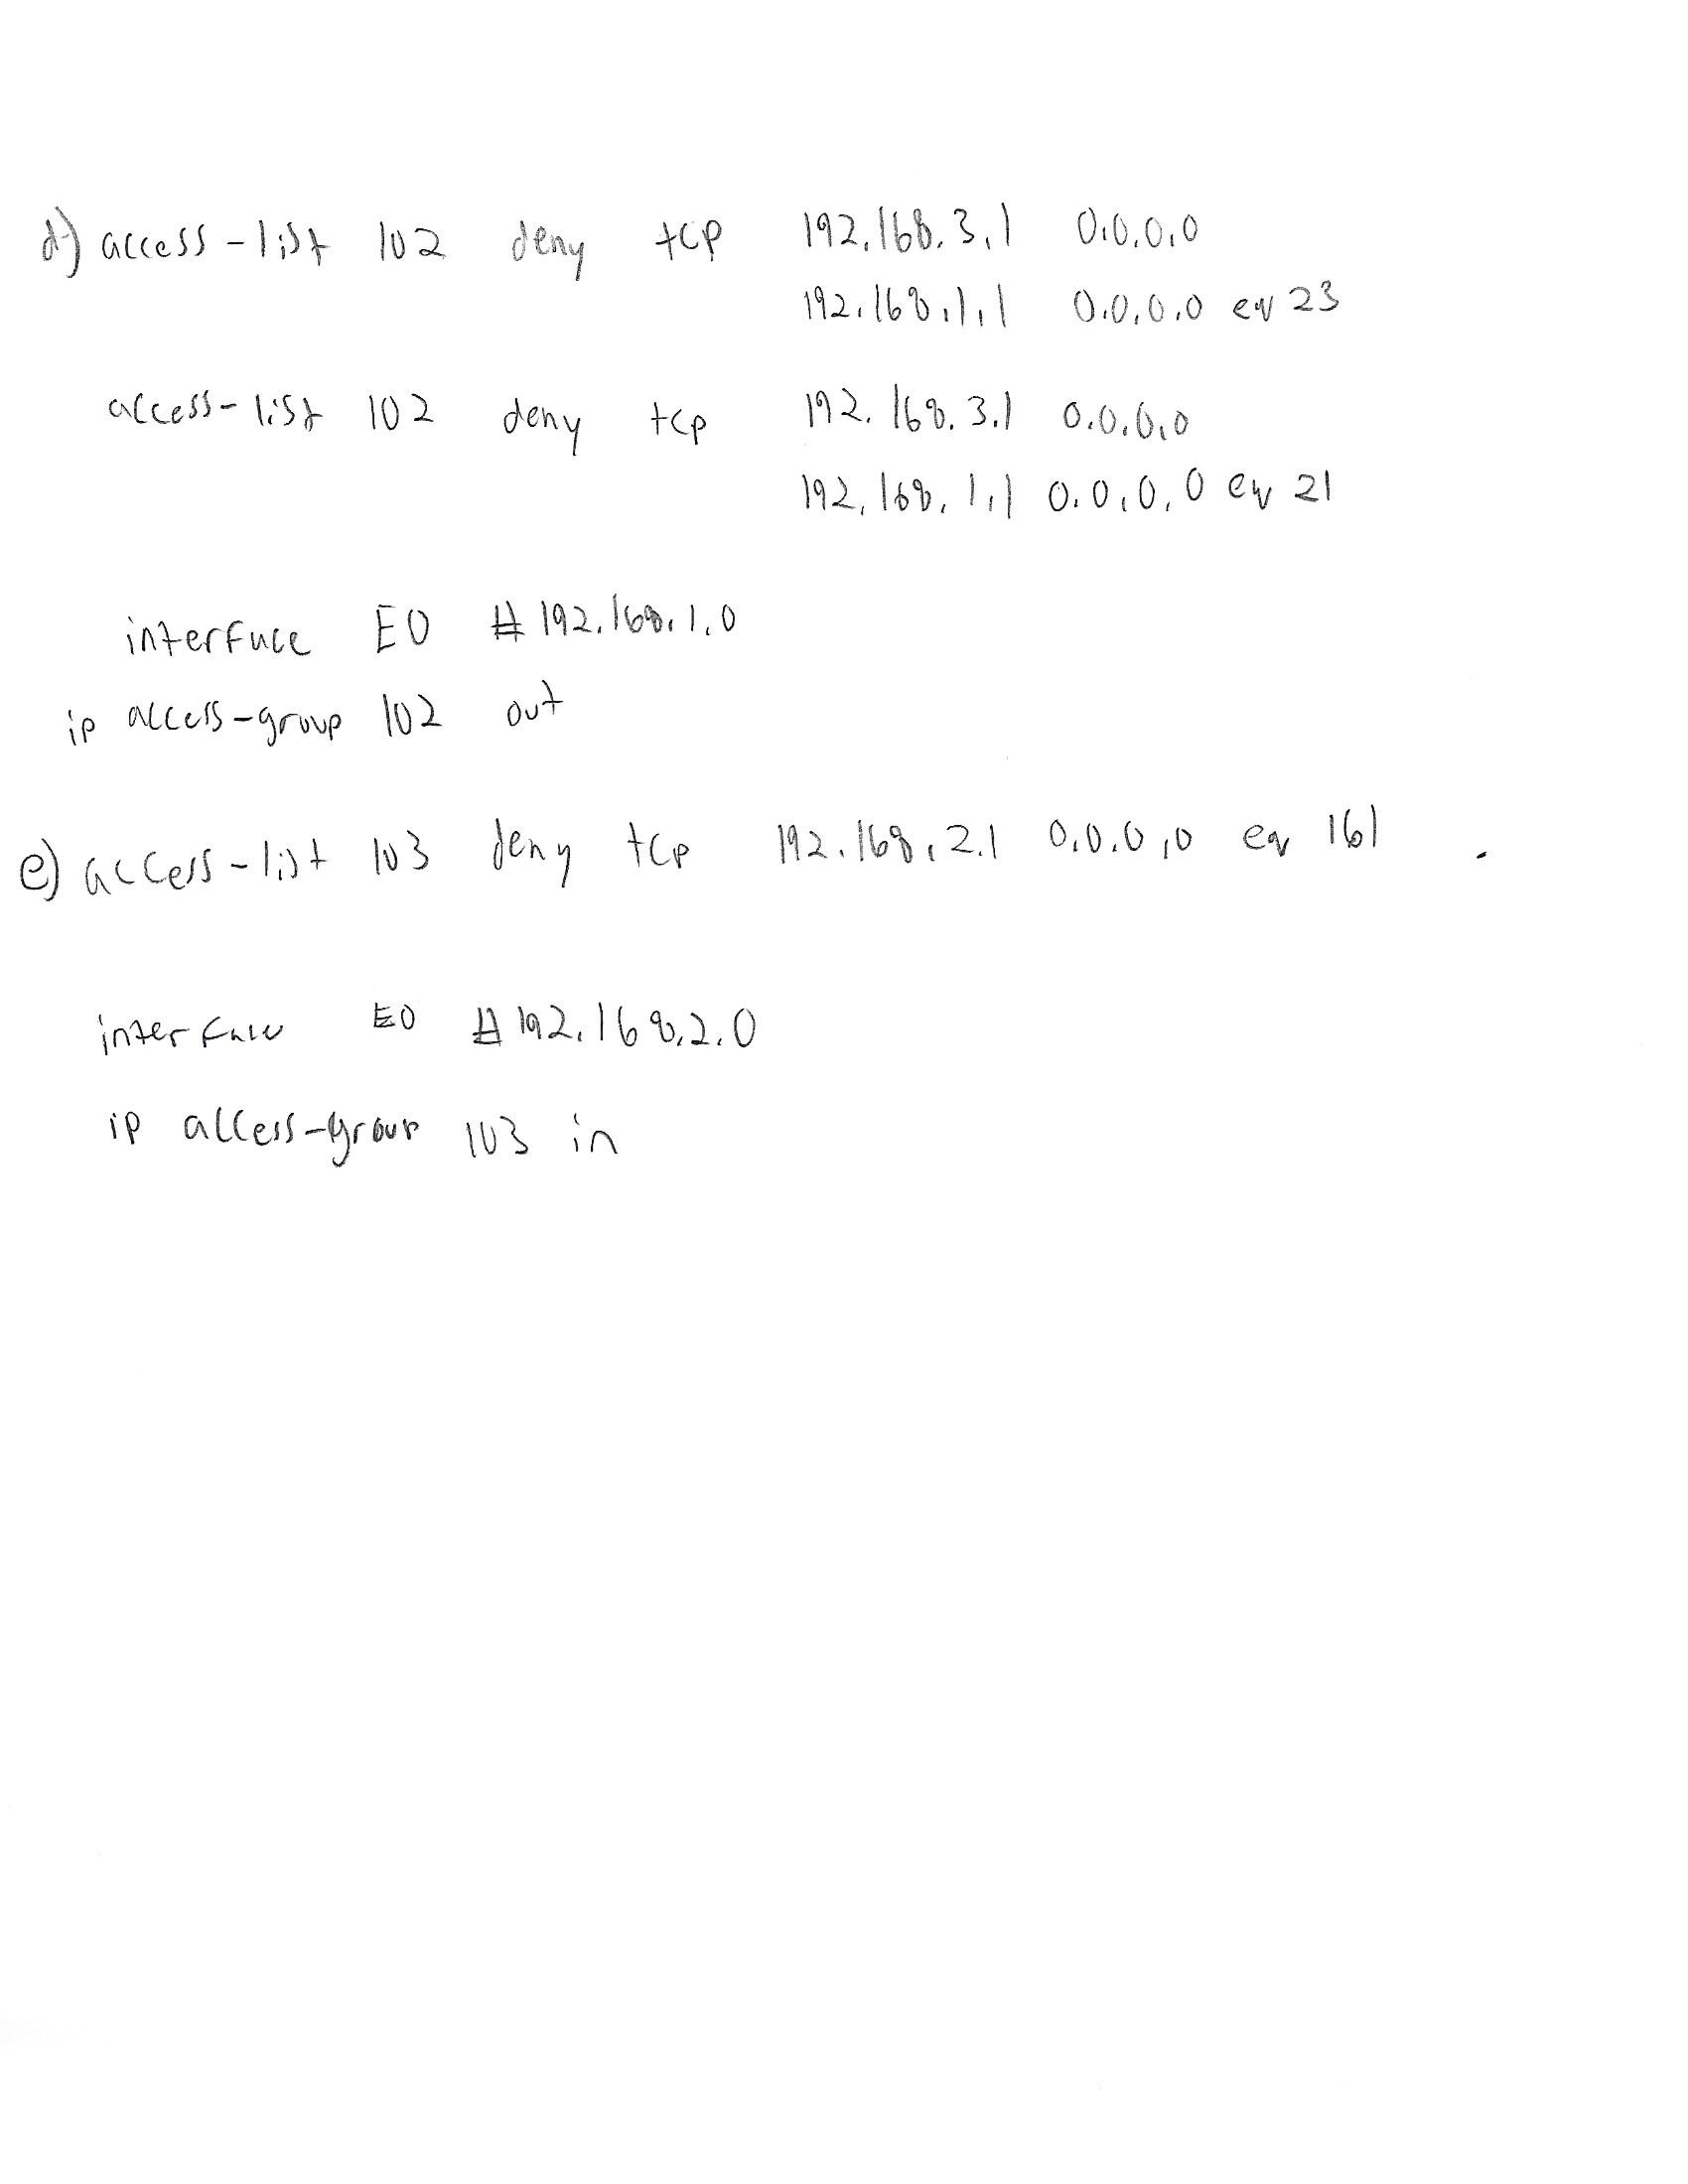 d) access-list 102 deny tcp 192.168.3.1 0.0.0.0
192.168.1.1 0.0.0.0 eq 23
access-list 102 deny tcp 192.168.3.1 0.0.0.0
192.168.1.1 0.0.0.0 eq 21
interface E0 # 192.168.1.0
ip access-group 102 out
e) access-list 103 deny tcp 192.168.2.1 0.0.0.0 eq 161
interface E0 # 192.168.2.0
ip access-group 103 in